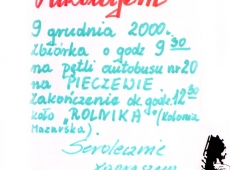 Mikołajem
9 grudnia 2000.
Zbiórka o godz 9 30
na pętli autobusu nr 20
na PIECZEWIE
zakończenie ok. godz. 12 30
koło "ROLNIKA" (Kolonia
Mazurska).
Serdecznie
zapraszam